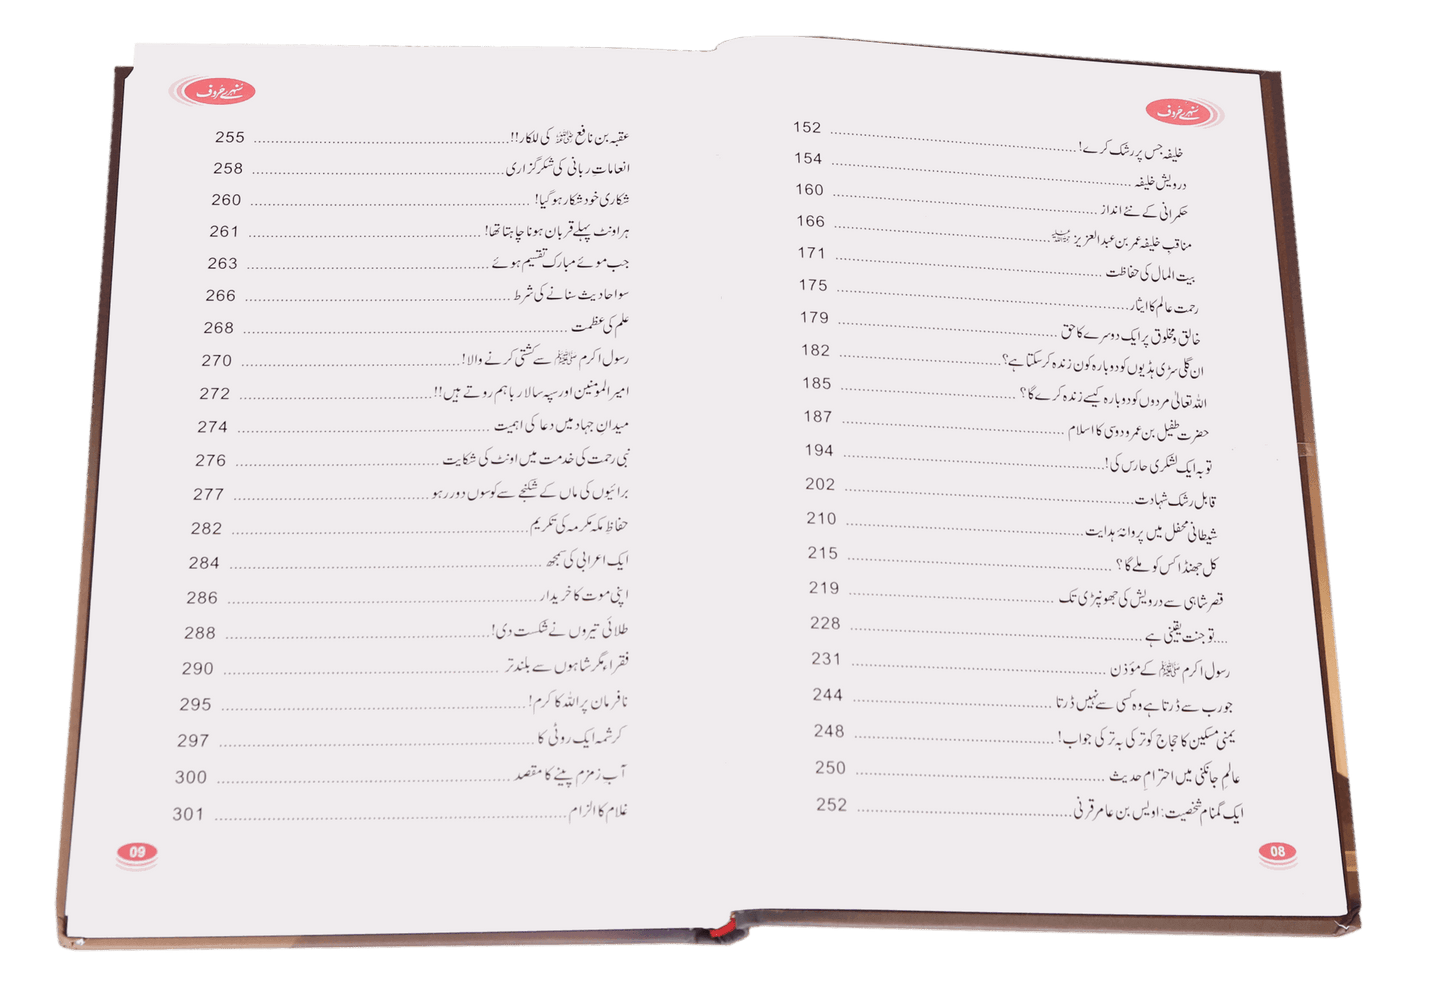 سنہرے حروف
خلیفہ جس پر رشک کرے! 152
درویش خلیفہ 154
حکمرانی کے نئے انداز 160
مناقب خلیفہ عمر بن عبدالعزیز 166
بیت المال کی حفاظت 171
رحمت عالم کا ایثار 175
خالق و مخلوق پر ایک دوسرے کا حق 179
ان گلی سڑی ہڈیوں کو دوبارہ کون زندہ کر سکتا ہے؟ 182
اللہ تعالیٰ مردوں کو دوبارہ کیسے زندہ کرے گا؟ 185
حضرت طفیل بن عمرو دوسی کا اسلام 187
توبہ ایک لشکری حارس کی! 194
قابل رشک شہادت 202
شیطانی محفل میں پروانۂ ہدایت 210
کل جھنڈا کس کو ملے گا؟ 215
قصر شاہی سے درویش کی جھونپڑی تک 219
....تو جنت یقینی ہے 228
رسول اکرم ﷺ کے مؤذن 231
جو رب سے ڈرتا ہے وہ کسی سے نہیں ڈرتا 244
یمنی مسکین کا حجاج کو ترکی بہ ترکی جواب! 248
عالم جانکنی میں احترام حدیث 250
ایک گمنام شخصیت: اویس بن عامر قرنی 252
08
سنہرے حروف
عقبہ بن نافع کی للکار!! 255
انعامات ربانی کی شکر گزاری 258
شکاری خود شکار ہو گیا! 260
ہر اونٹ پہلے قربان ہونا چاہتا تھا! 261
جب موئے مبارک تقسیم ہوئے 263
سو احادیث سنانے کی شرط 266
علم کی عظمت 268
رسول اکرم ﷺ سے کشتی کرنے والا! 270
امیر المومنین اور سپہ سالار باہم روتے ہیں!! 272
میدان جہاد میں دعا کی اہمیت 274
نبی رحمت کی خدمت میں اونٹ کی شکایت 276
برائیوں کی ماں کے شکنجے سے کوسوں دور رہو 277
حفاظ مکہ مکرمہ کی تکریم 282
ایک اعرابی کی سمجھ 284
اپنی موت کا خریدار 286
طلائی تیروں نے شکست دی! 288
فقراء مگر شاہوں سے بلند تر 290
نافرمان پر اللہ کا کرم! 295
کرشمہ ایک روٹی کا 297
آب زمزم پینے کا مقصد 300
غلام کا الزام 301
09